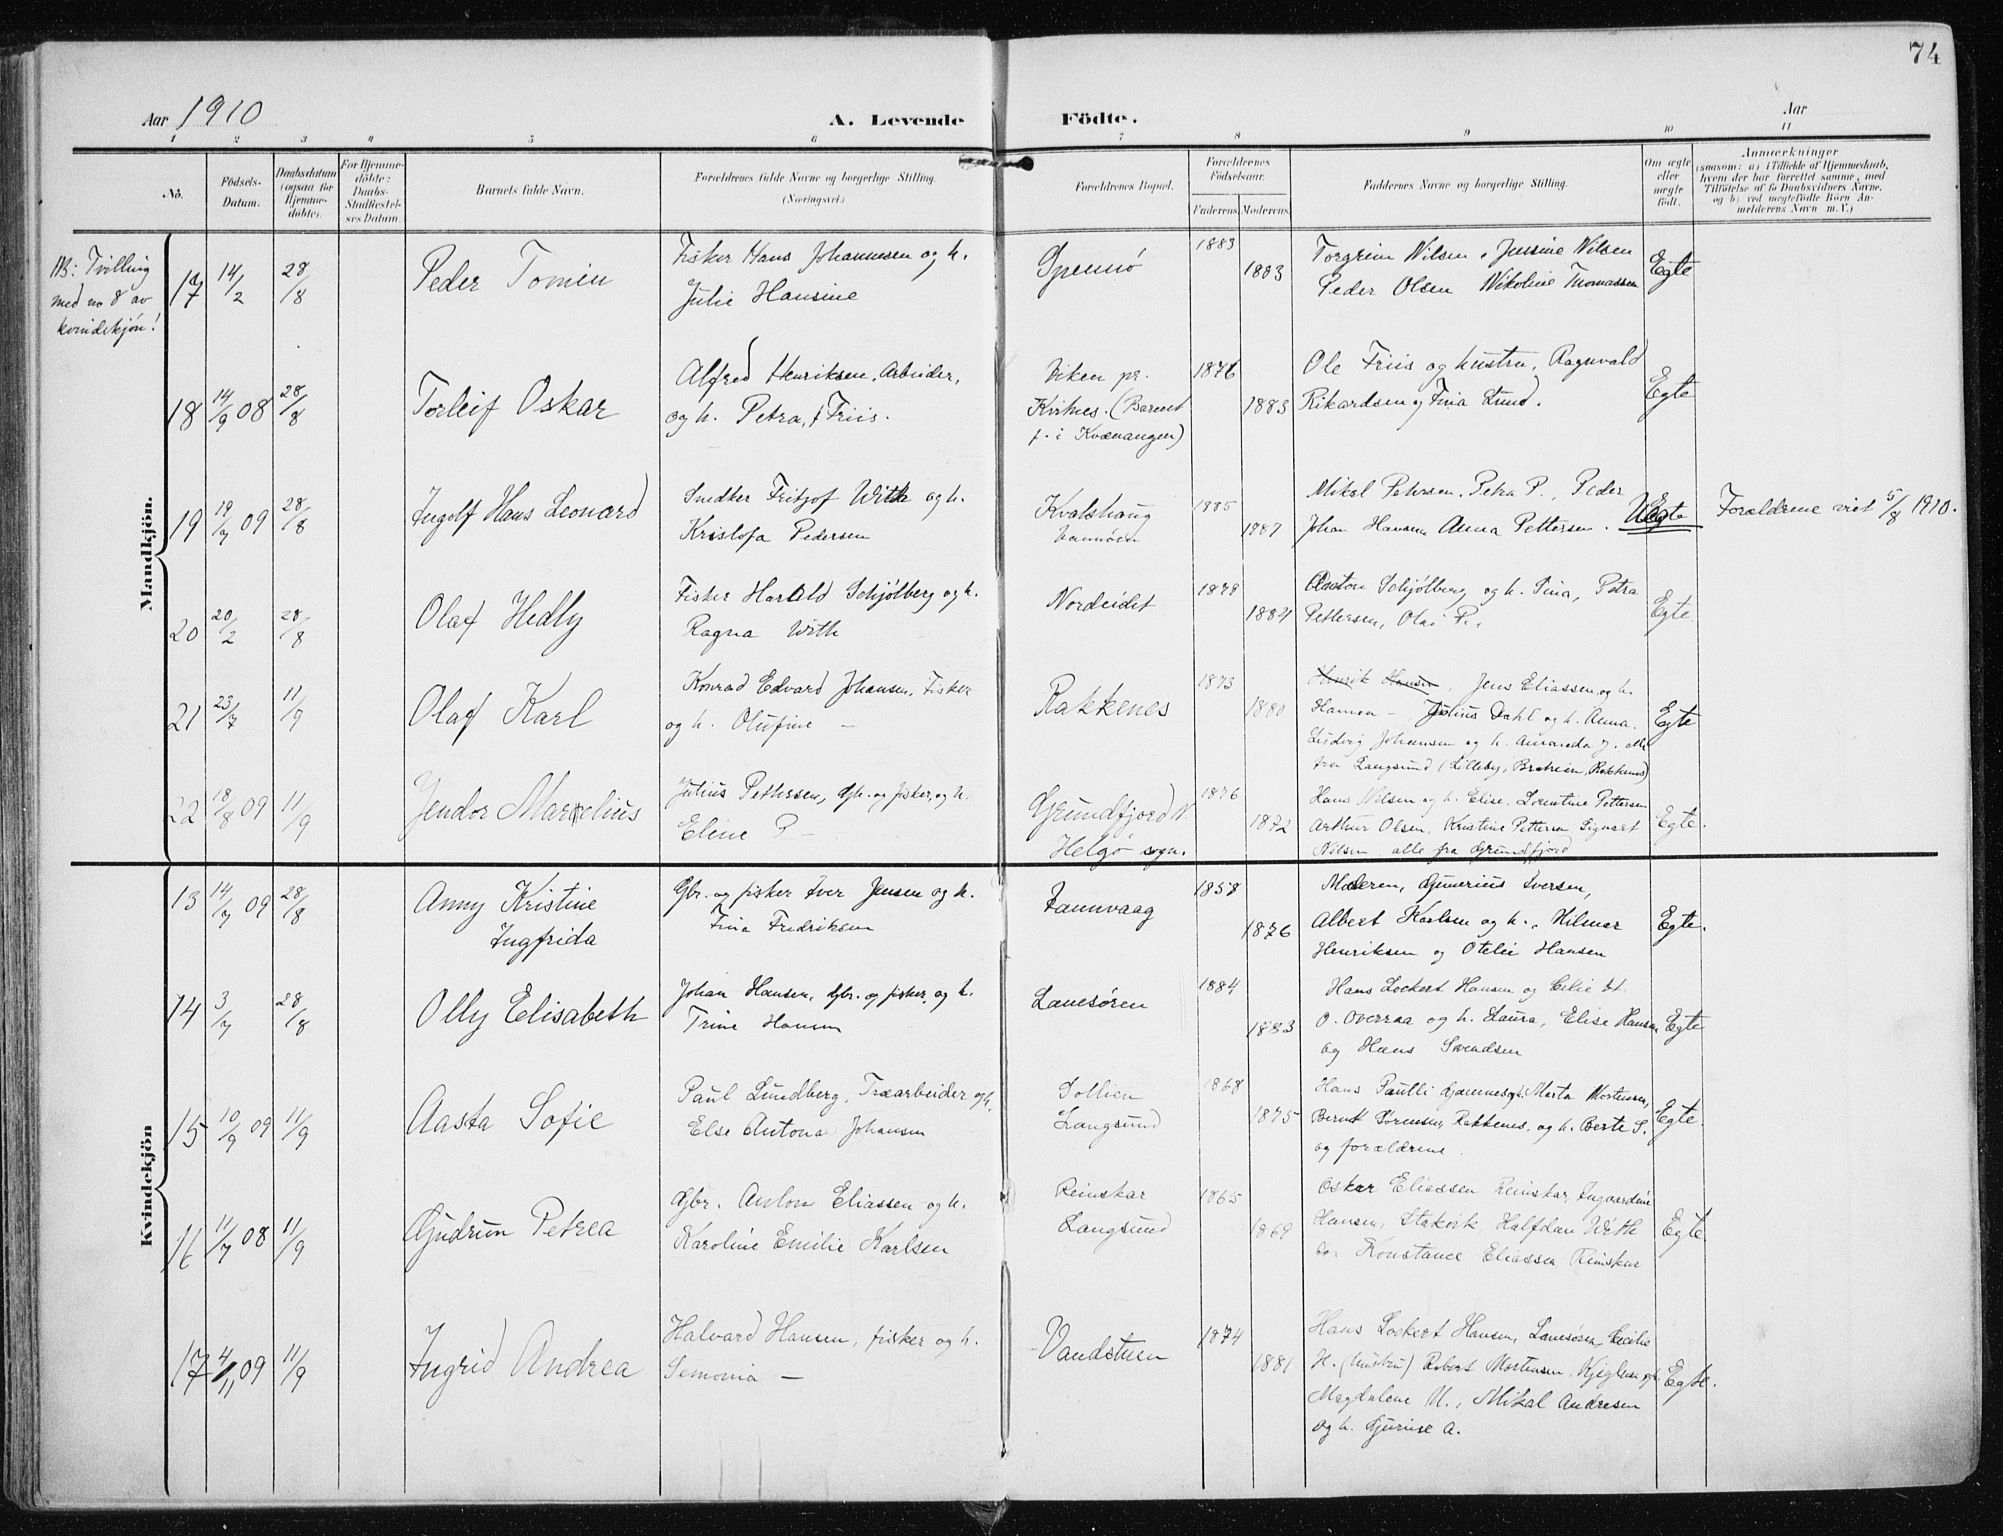 74
Aar 1910
A. Levende Födte.
Aar
1 2 3 4 5 6 7 8 9 10 11
No.
Födsels-Datum.
Daabsdatum (ogsaa for Hjemmedöbte).
For Hjemmedöbte: Daabs-Stadfæstelses Datum.
Barnets fulde Navn.
Forældrenes fulde Navne og borgerlige Stilling. (Næringsvei.)
Forældrenes Bopæl.
Forældrenes Födselsaar.
Faderens. Moderens.
Faddernes Navne og borgerlige Stilling.
Om ægte eller uægte födt.
Anmærkninger
(saasom: a) i Tilfælde af Hjemmedaab, hvem der har forrettet samme, med Tilföielse af to Daabsvidners Navne, og b) ved uegtefödte Börn Anmelderens Navn m. V.)
Mandkjön.
NB: Tvilling
med no 8 av
kvindekjøn!
17 14/2 28/8 Peder Tomin
Fisker Hans Johannesen og h.
Julie Hansine
Spensø
1883 1883
Torgrim Nilsen, Jussine Nilsen
Peder Olsen Nikoline Thomassen
Egte
18 14/9 08 28/8 Torleif Oskar
Alfred Henriksen, Arbeider,
og h. Petra, f. Friis.
Viken pr.
Kvitnes. (Barnet
f. i Kvænangen)
1876 1883
Ole Friis og hustru, Ragnvald
Rikardsen og Fina Lund.
Egte
19 19/7 09 28/8 Ingolf Hans Leonard
Snedker Fritjof With og h.
Kristofa Pedersen
Kvalshaug
Vannøen
1885 1887
Mikal Petersen, Petra P., Peder
Johan Hansen Anna Pettersen.
Uegte
Forældrene viet 5/8 1910.
20 20/2 28/8 Olaf Hedly
Fisker Harald Schjølberg og h.
Ragna With
Nordeidet
1879 1884
Anton Schjølberg og h. Tina, Petra
Pettersen, Olai P.,
Egte
21 23/7 11/9 Olaf Karl
Konrad Edvard Johansen, Fisker
og h. Olufine —
Rakkenes
1873 1880
Henrik Hansen, Jens Eliassen, og h.
Hansen — Julius Dahl og h. Anna.
Ludvig Johansen og h. J. alle
fra Langsund (Lilleby, Rakkenes)
Egte
22 18/8 09 11/9 Jendor Marselius
Julius Pettersen, Gbr. og fisker, og h.
Eline P —
Grundfjord N.
Helgø sogn.
1876 1872
Hans Nilsen og h. Elise. Lorentine Pettersen
Arthur Olsen, Kristine Pettersen Sigvart
Nilsen alle fra Grundfjord
Egte.
Kvindekjön
13 14/7 09 28/8 Anny Kristine
Ingfrida
Gbr. og fisker Iver Jensen og h.
Fina Fredriksen
Vannvaag
1858 1876
Moderen, Gunerius Iversen,
Albert Karlsen og h., Hilmar
Henriksen og Otelie Hansen
Egte.
14 3/7 28/8 Olly Elisabeth
Johan Hansen, Gbr. og fisker, og h.
Trine Hansen
Lanesøren
1884 1883
Hans Lockert Hansen og Cilie H.
O. Overraa og h. Laura, Elise Hansen
og Hans Svendsen
Egte
15 10/9 09 11/9 Aasta Sofie
Paul Lundberg, Træarbeider og h.
Else Antona Johansen
Sollien
Langsund
1868 1875
Hans Paulli Marta Mortensen,
Bernt Sørensen, Rakkenes, og h. Berte S.
og forældrene.
Egte.
16 11/7 08 11/9 Gudrun Petrea
Gbr. Anton Eliassen og h.
Karoline Emilie Karlsen
Reinskar
Langsund
1865 1869
Oskar Eliassen Reinskar,
Hansen, Halfdan With
og Konstance Eliassen Reinskar
Egte
17 4/11 09 11/9 Ingrid Andrea
Halvard Hansen, fisker og h.
Semonia —
Vandstuen
1874 1881
Hans Lockert Hansen, Lanesøren, Cecilie
H. (hustru) Robert Mortensen,
Magdalene M., Mikal Andresen
og h. A.
Egte.